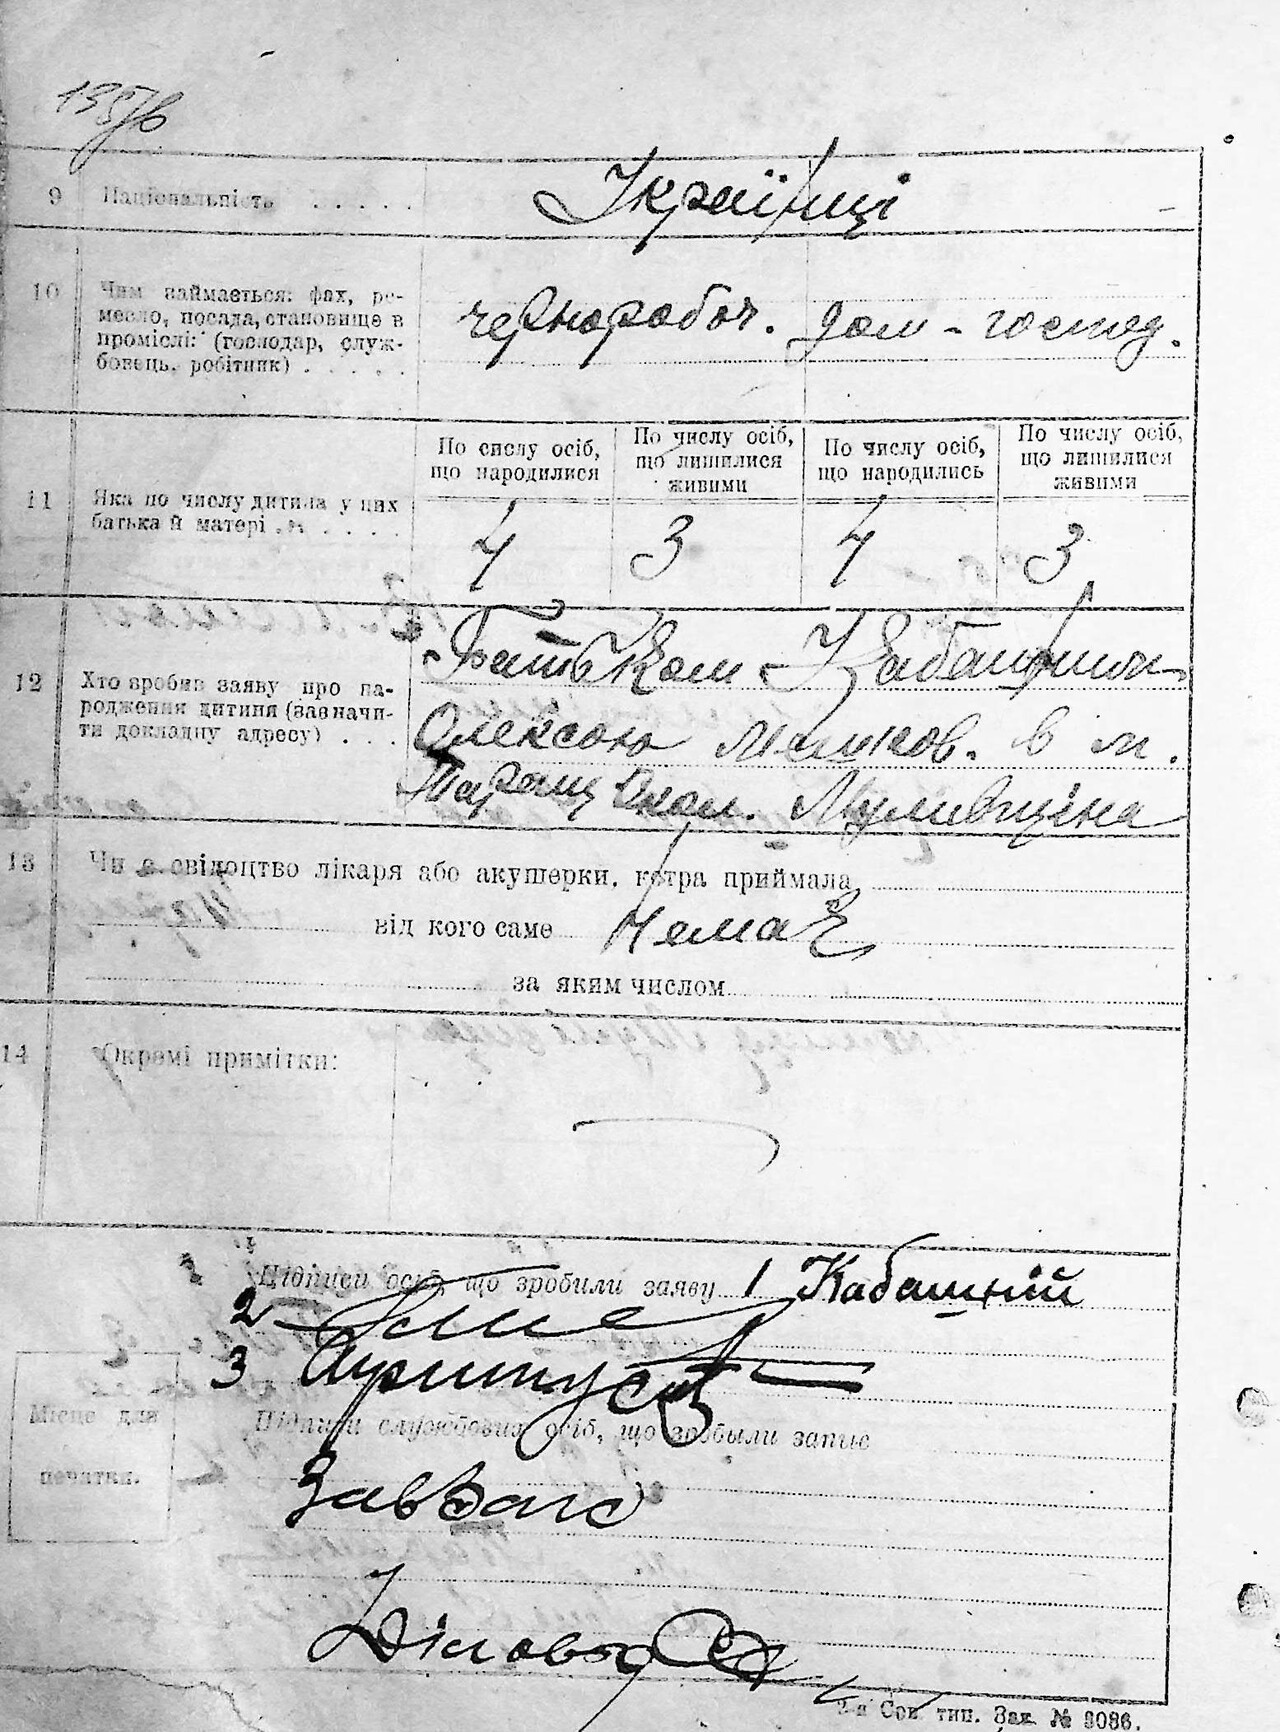 135/в
9 Національність . . . . . Українці
10 Чим займається: фах, ре-
месло, посада, становище в
проміслі: (господар, служ-
бовець, робітник) . . . . .
чернорабоч. дом-господ.
По числу осіб, що народилися
По числу осіб, що лишилися живими
По числу осіб, що народились
По числу осіб, що лишилися живими
11 Яка по числу дитина у них
батька й матері . . . . .
4 3 4 3
12 Хто зробив заяву про на-
родження дитини (зазначи-
ти докладну адресу) . . .
Батьком Кабашним
Олексою в м.
13 Чи є свідоцтво лікаря або акушерки, котра приймала
від кого саме Немає
за яким числом
14 Окремі примітки:
Підписи осіб, що зробили заяву 1 Кабашний
2
3
Підписи службових осіб, що зробыли запис
Місце для
печатки.
ЗавЗагс
Діловод
2-а Сов. тип. Зак. № 3086.